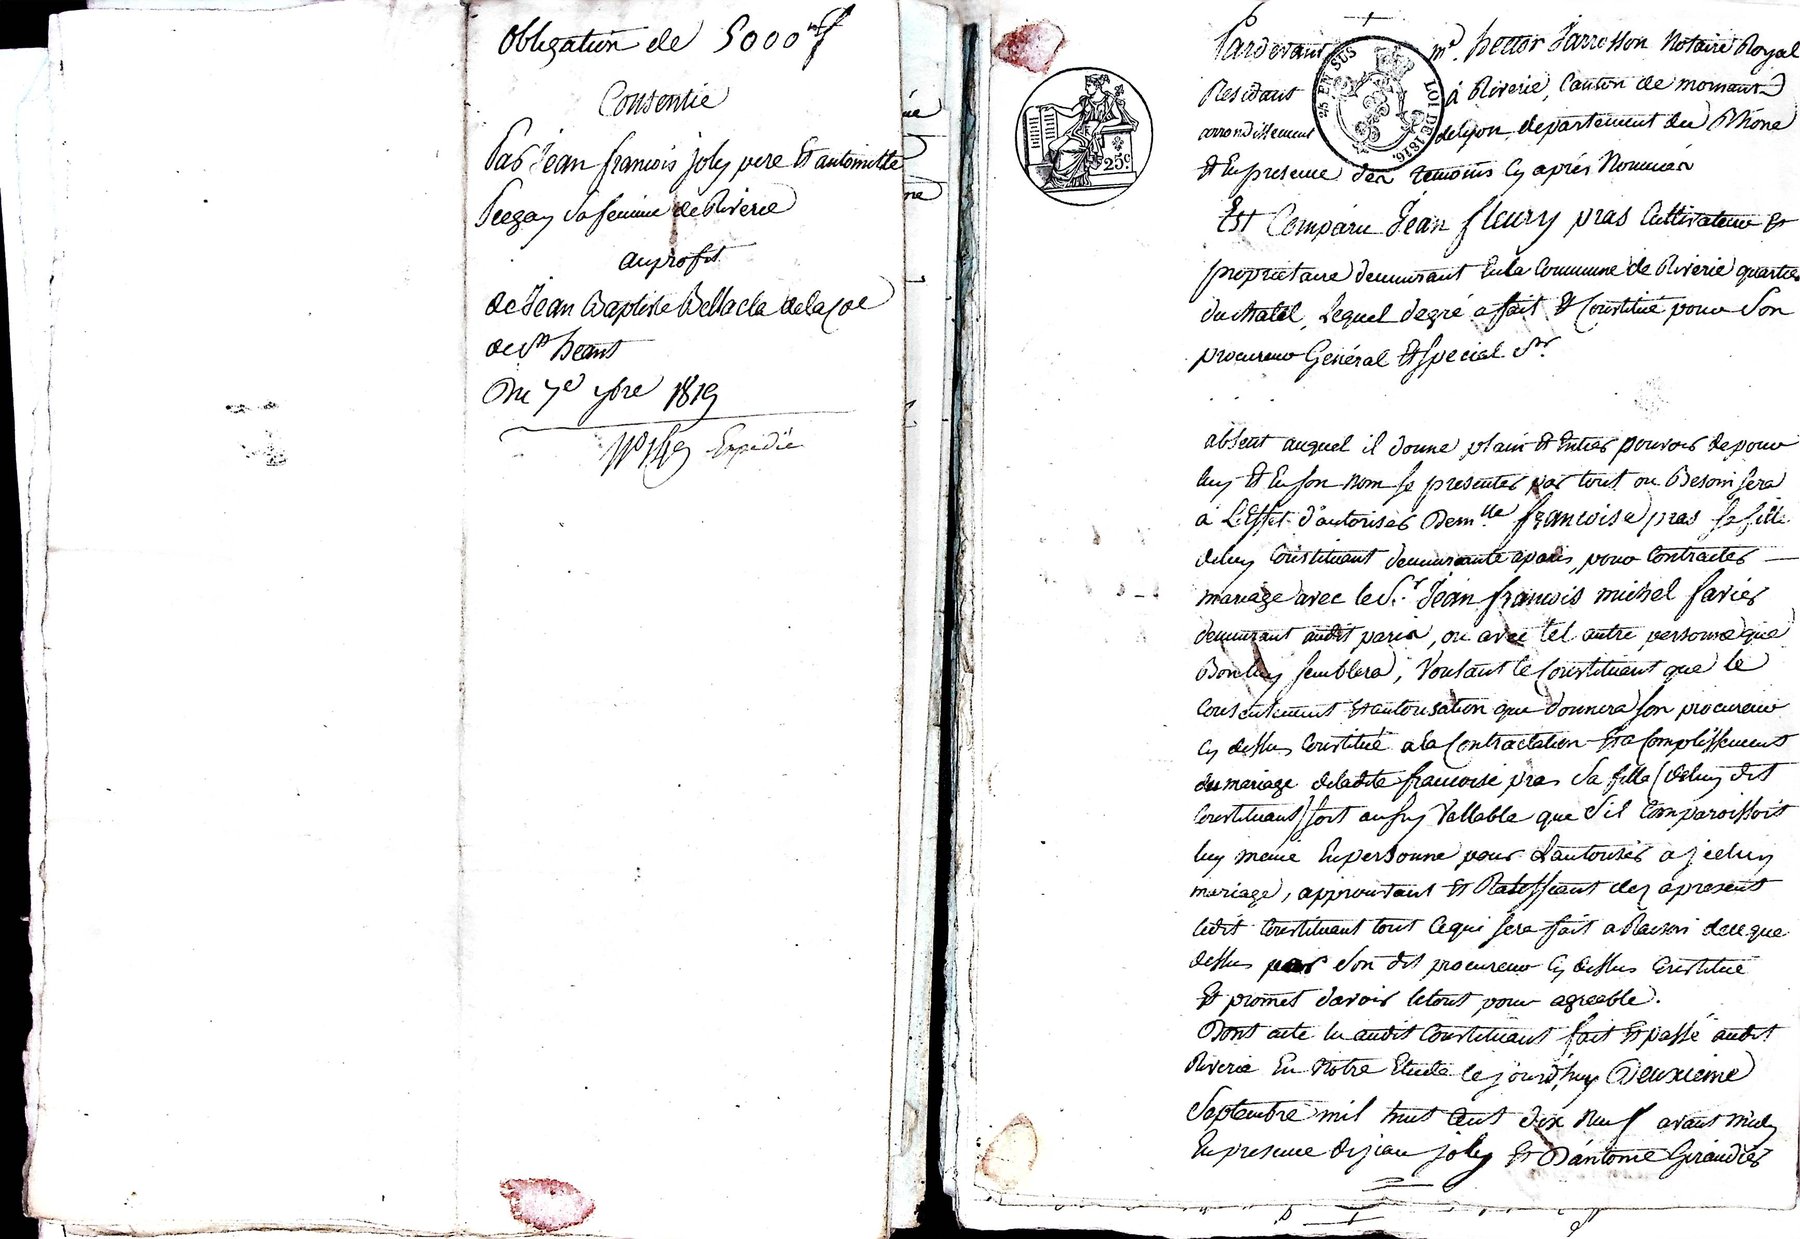 Obligation de 5000 ₶
Consentie
Par Jean françois joly pere Et antoinette
sa femme de Riverie
au profit
de Jean Baptiste de la
de St heant
Du 7e 7bre 1819
Expedié
Pardevant Me. hector Jarrosson Notaire Royal
Residant à Riverie, Canton de mornant
arrondissement de Lyon, departement du Rhône
Et En presence des temoins Cy aprés Nommés
Est Comparu Jéan fleury pras Cultivateur Et
proprietaire demeurant En la Commune de Riverie quartier
du Lequel de gré a fait Et Constitué pour Son
procureur Général Et Special Sr.
absent auquel il donne plain Et Entier pouvoir de pour
luy Et En son nom se presenter par tout ou Besoin sera
à L'Effet d'autoriser Demlle françoise pras sa fille
de luy Constituant demeurante a paris, pour Contracter
mariage avec le Sr. Jéan françois michel favier
demeurant audit paris, ou avec tel autre personne que
Bon luy semblera, Voulant le Constituant que le
Consentement Et autorisation que donnera son procureur
Cy dessus Constitué a la Contractation Et acomplissement
du mariage de ladite francoise pras Sa fille (de luy dit
Constituant) soit aussy Vallable que S'il Comparoissoit
luy même En personne pour L'autoriser a jceluy
mariage, approuvant Et Ratiffiant dez apresent
ledit Constituant tout Ce qui sera fait a Raison de ce que
dessus par Son dit procureur Cy dessus Constitué
Et promet d'avoir le tout pour agreable.
Dont acte lu audit Constituant fait Et passé audit
Riverie En Notre Etude ce jourd'huy Deuxieme
Septembre mil huit Cent dix Neuf avant midy
En presence de jean joly Et D'antoine Giraudier
25 EN SUS
LOI DE 1816.
25c.